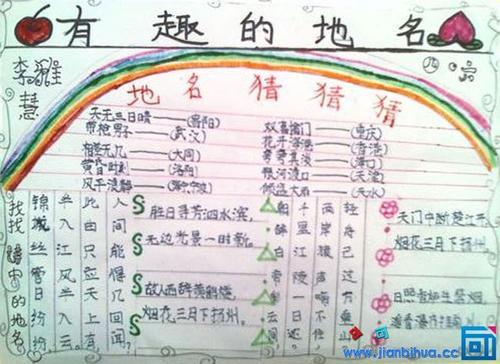 有趣的地名
李雅慧
地名猜猜猜
天无三日晴——(贵阳)
带枪男子——(武汉)
相差无几——(大同)
黄昏时刻——(洛阳)
风平浪静——(宁波)
双喜临门——(重庆)
(香港)
(海口)
银河渡口——(天津)
(天水)
找找诗中的地名
锦城丝管日纷纷
半入江风半入云
此曲只应天上有
人间能得几回闻?
胜日寻芳泗水滨,
无边光景一时新。
故人西辞黄鹤楼,
烟花三月下扬州。
朝辞白帝彩云间
千里江陵一日还。
两岸猿声啼不住
轻舟已过万重山
天门中断楚江开
烟花三月下扬州。
日照香炉生紫烟
遥看瀑布挂前川
www.jianbihua.cc